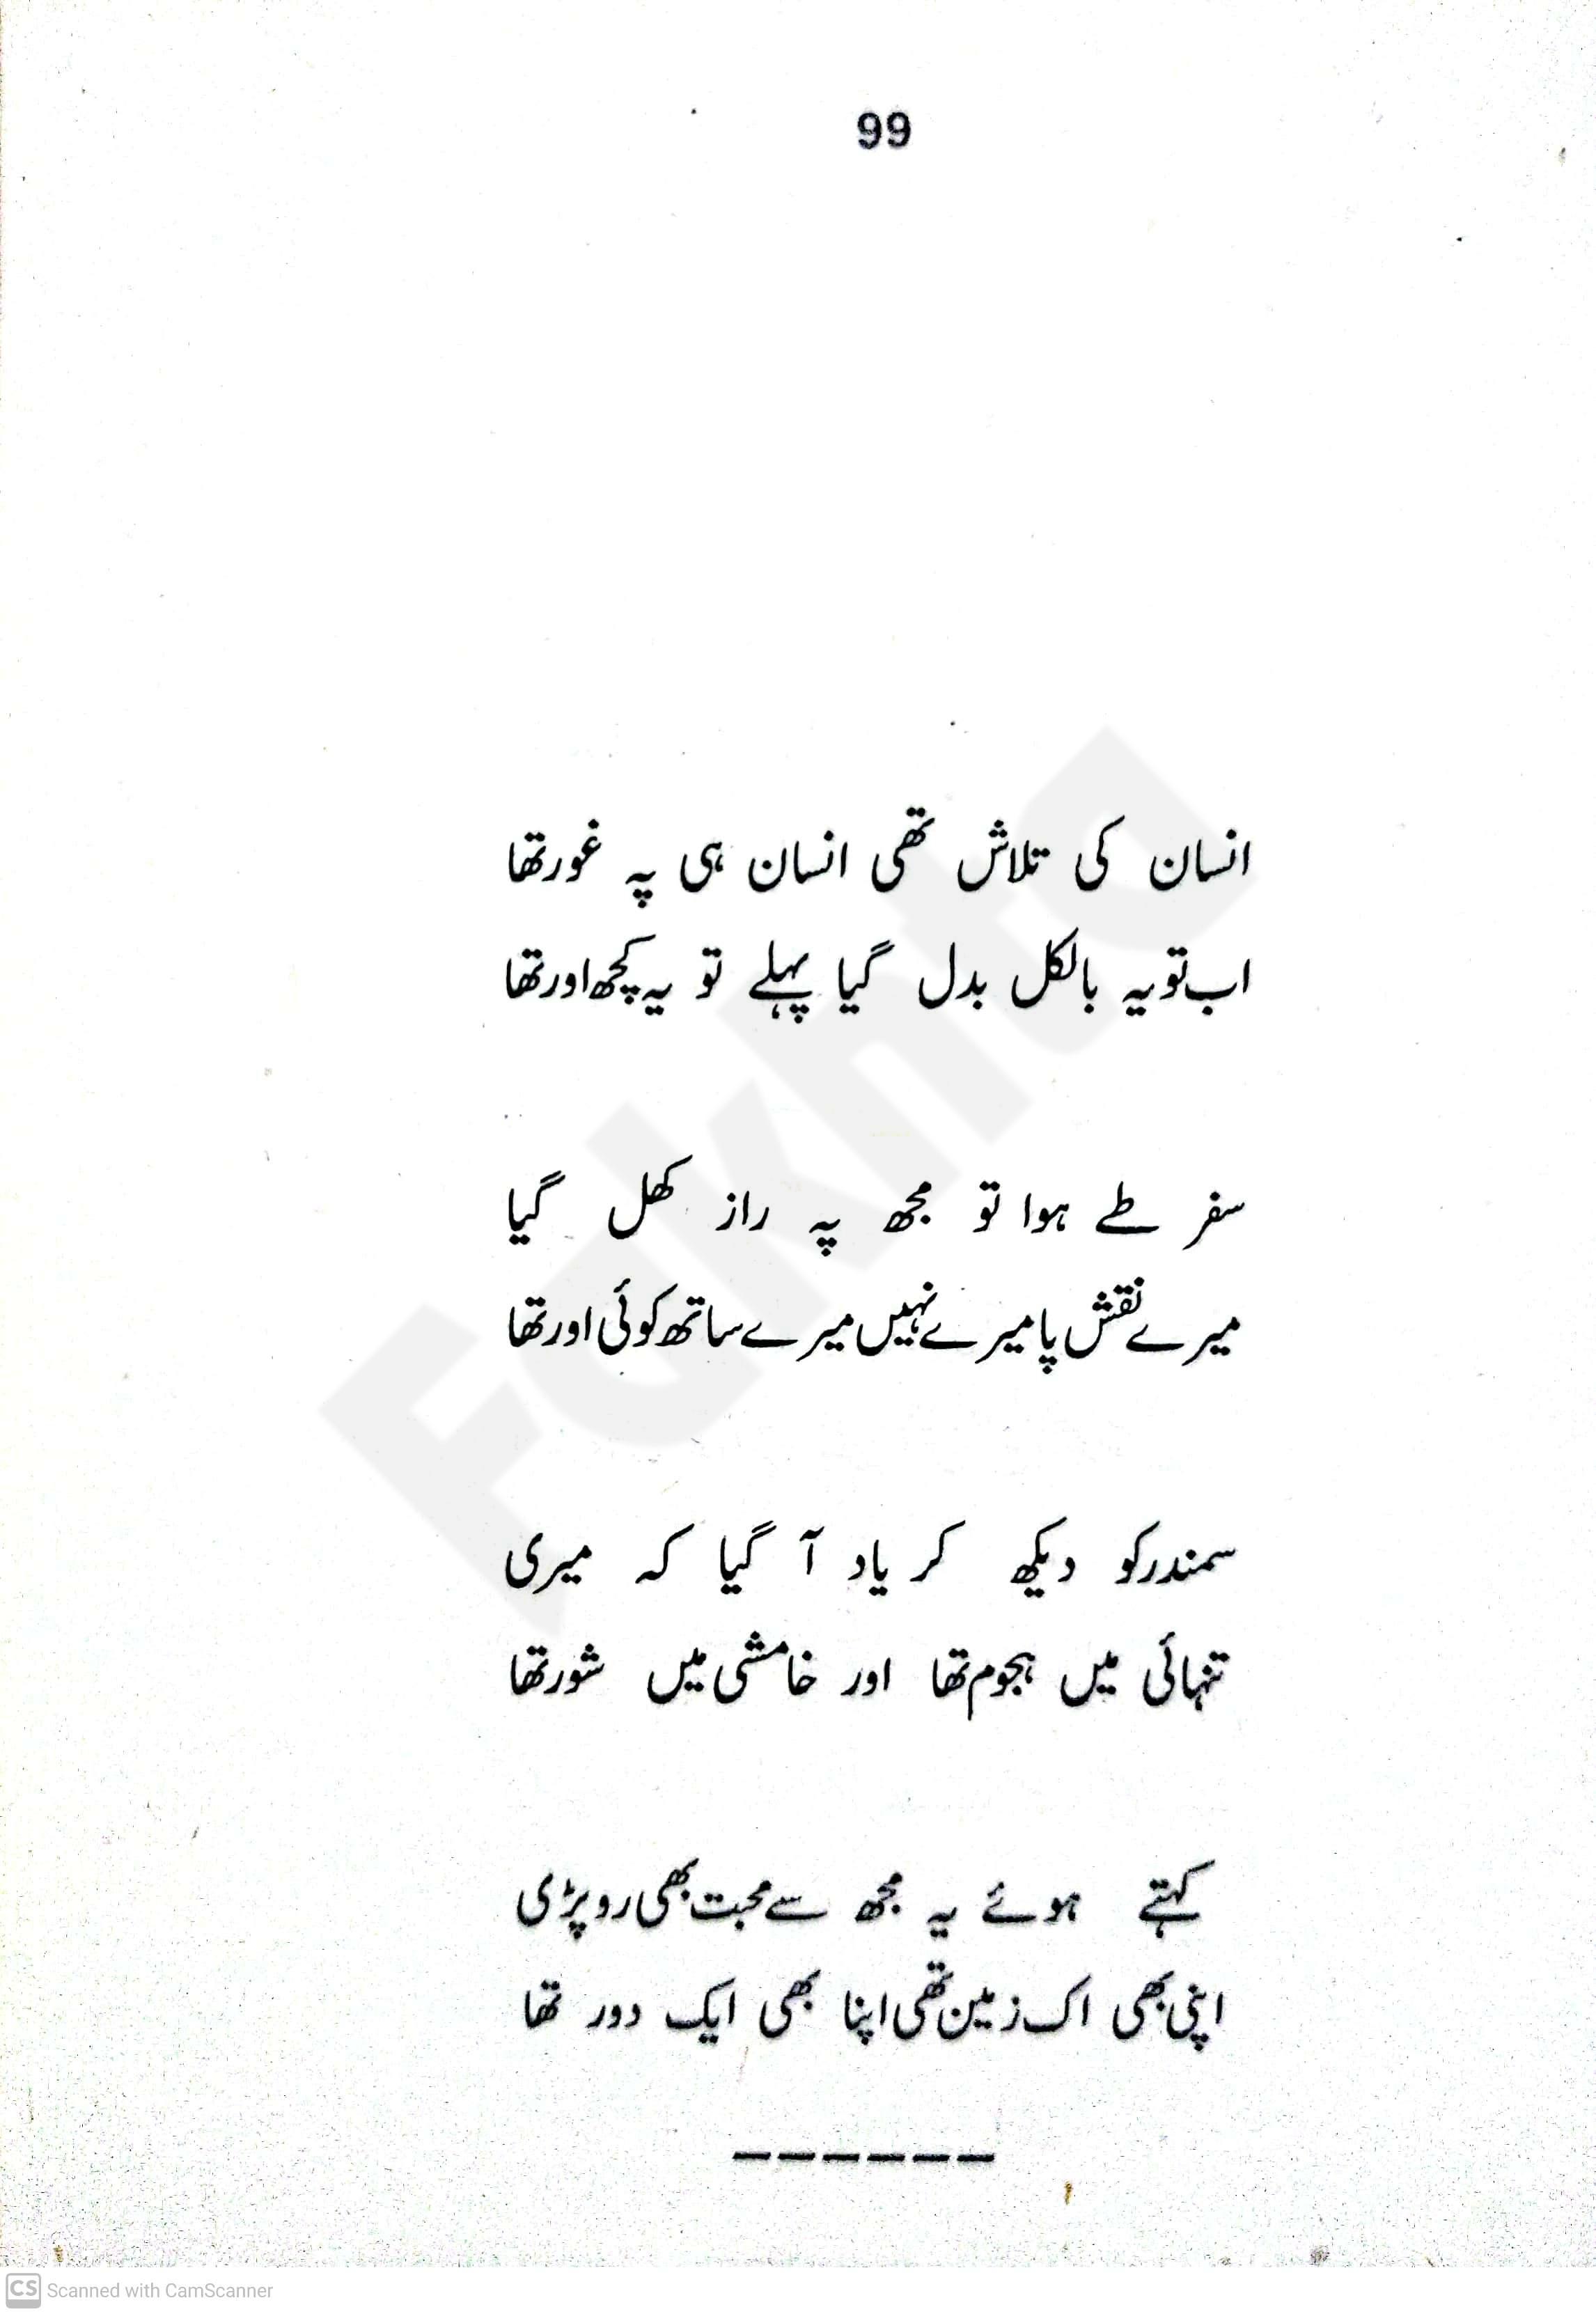 99
انسان کی تلاش تھی انسان ہی پہ غور تھا
اب تو یہ بالکل بدل گیا پہلے تو یہ کچھ اور تھا
سفر طے ہوا تو مجھ پہ راز کھل گیا
میرے نقش پا میرے نہیں میرے ساتھ کوئی اور تھا
سمندر کو دیکھ کر یاد آ گیا کہ میری
تنہائی میں ہجوم تھا اور خامشی میں شور تھا
کہتے ہوئے یہ مجھ سے محبت بھی رو پڑی
اپنی بھی اک زمین تھی اپنا بھی ایک دور تھا
------
Fakhta
CS Scanned with CamScanner